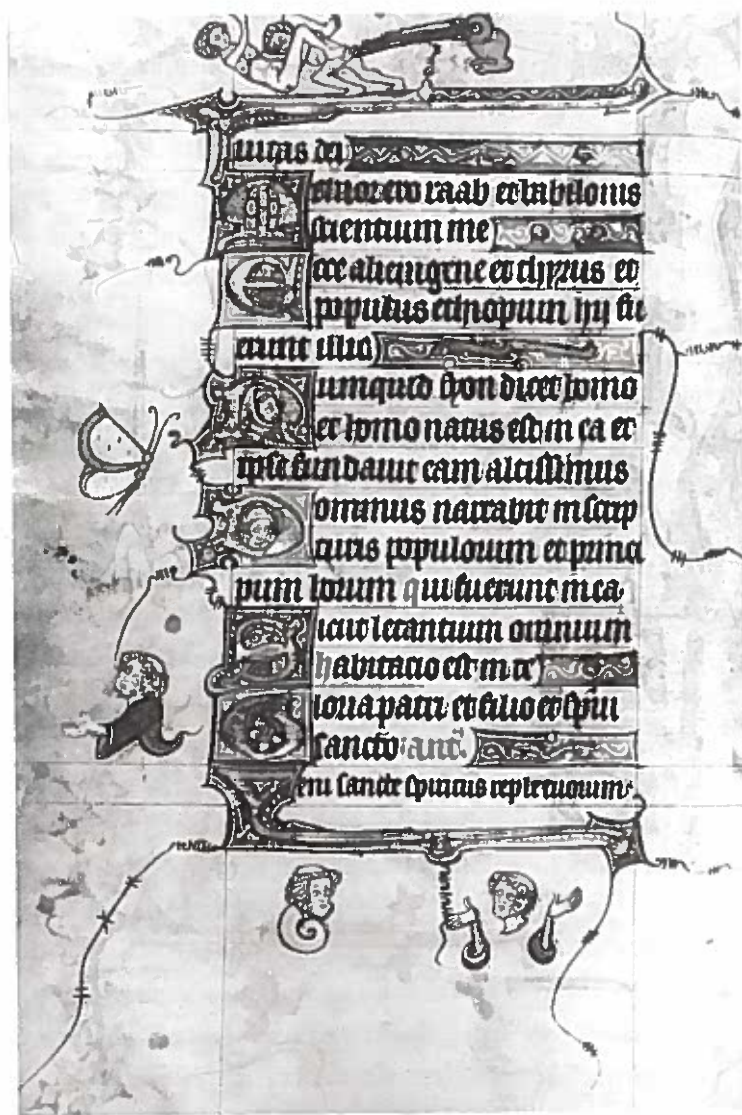 uitas dei
Memor ero raab et babilonis
scientium me
Ecce alienigene et thyrus et
populus ethyopum hy fu
erunt illic
Numquid syon dicet homo
et homo natus est in ea et
ipse fundauit eam altissimus
Dominus narrabit in scrip
turis populorum et princi
pum horum qui fuerunt in ea
Sicut letantium omnium
habitacio est in te
Gloria patri et filio et spui
sancto ant.
Veni sancte spiritus reple tuorum